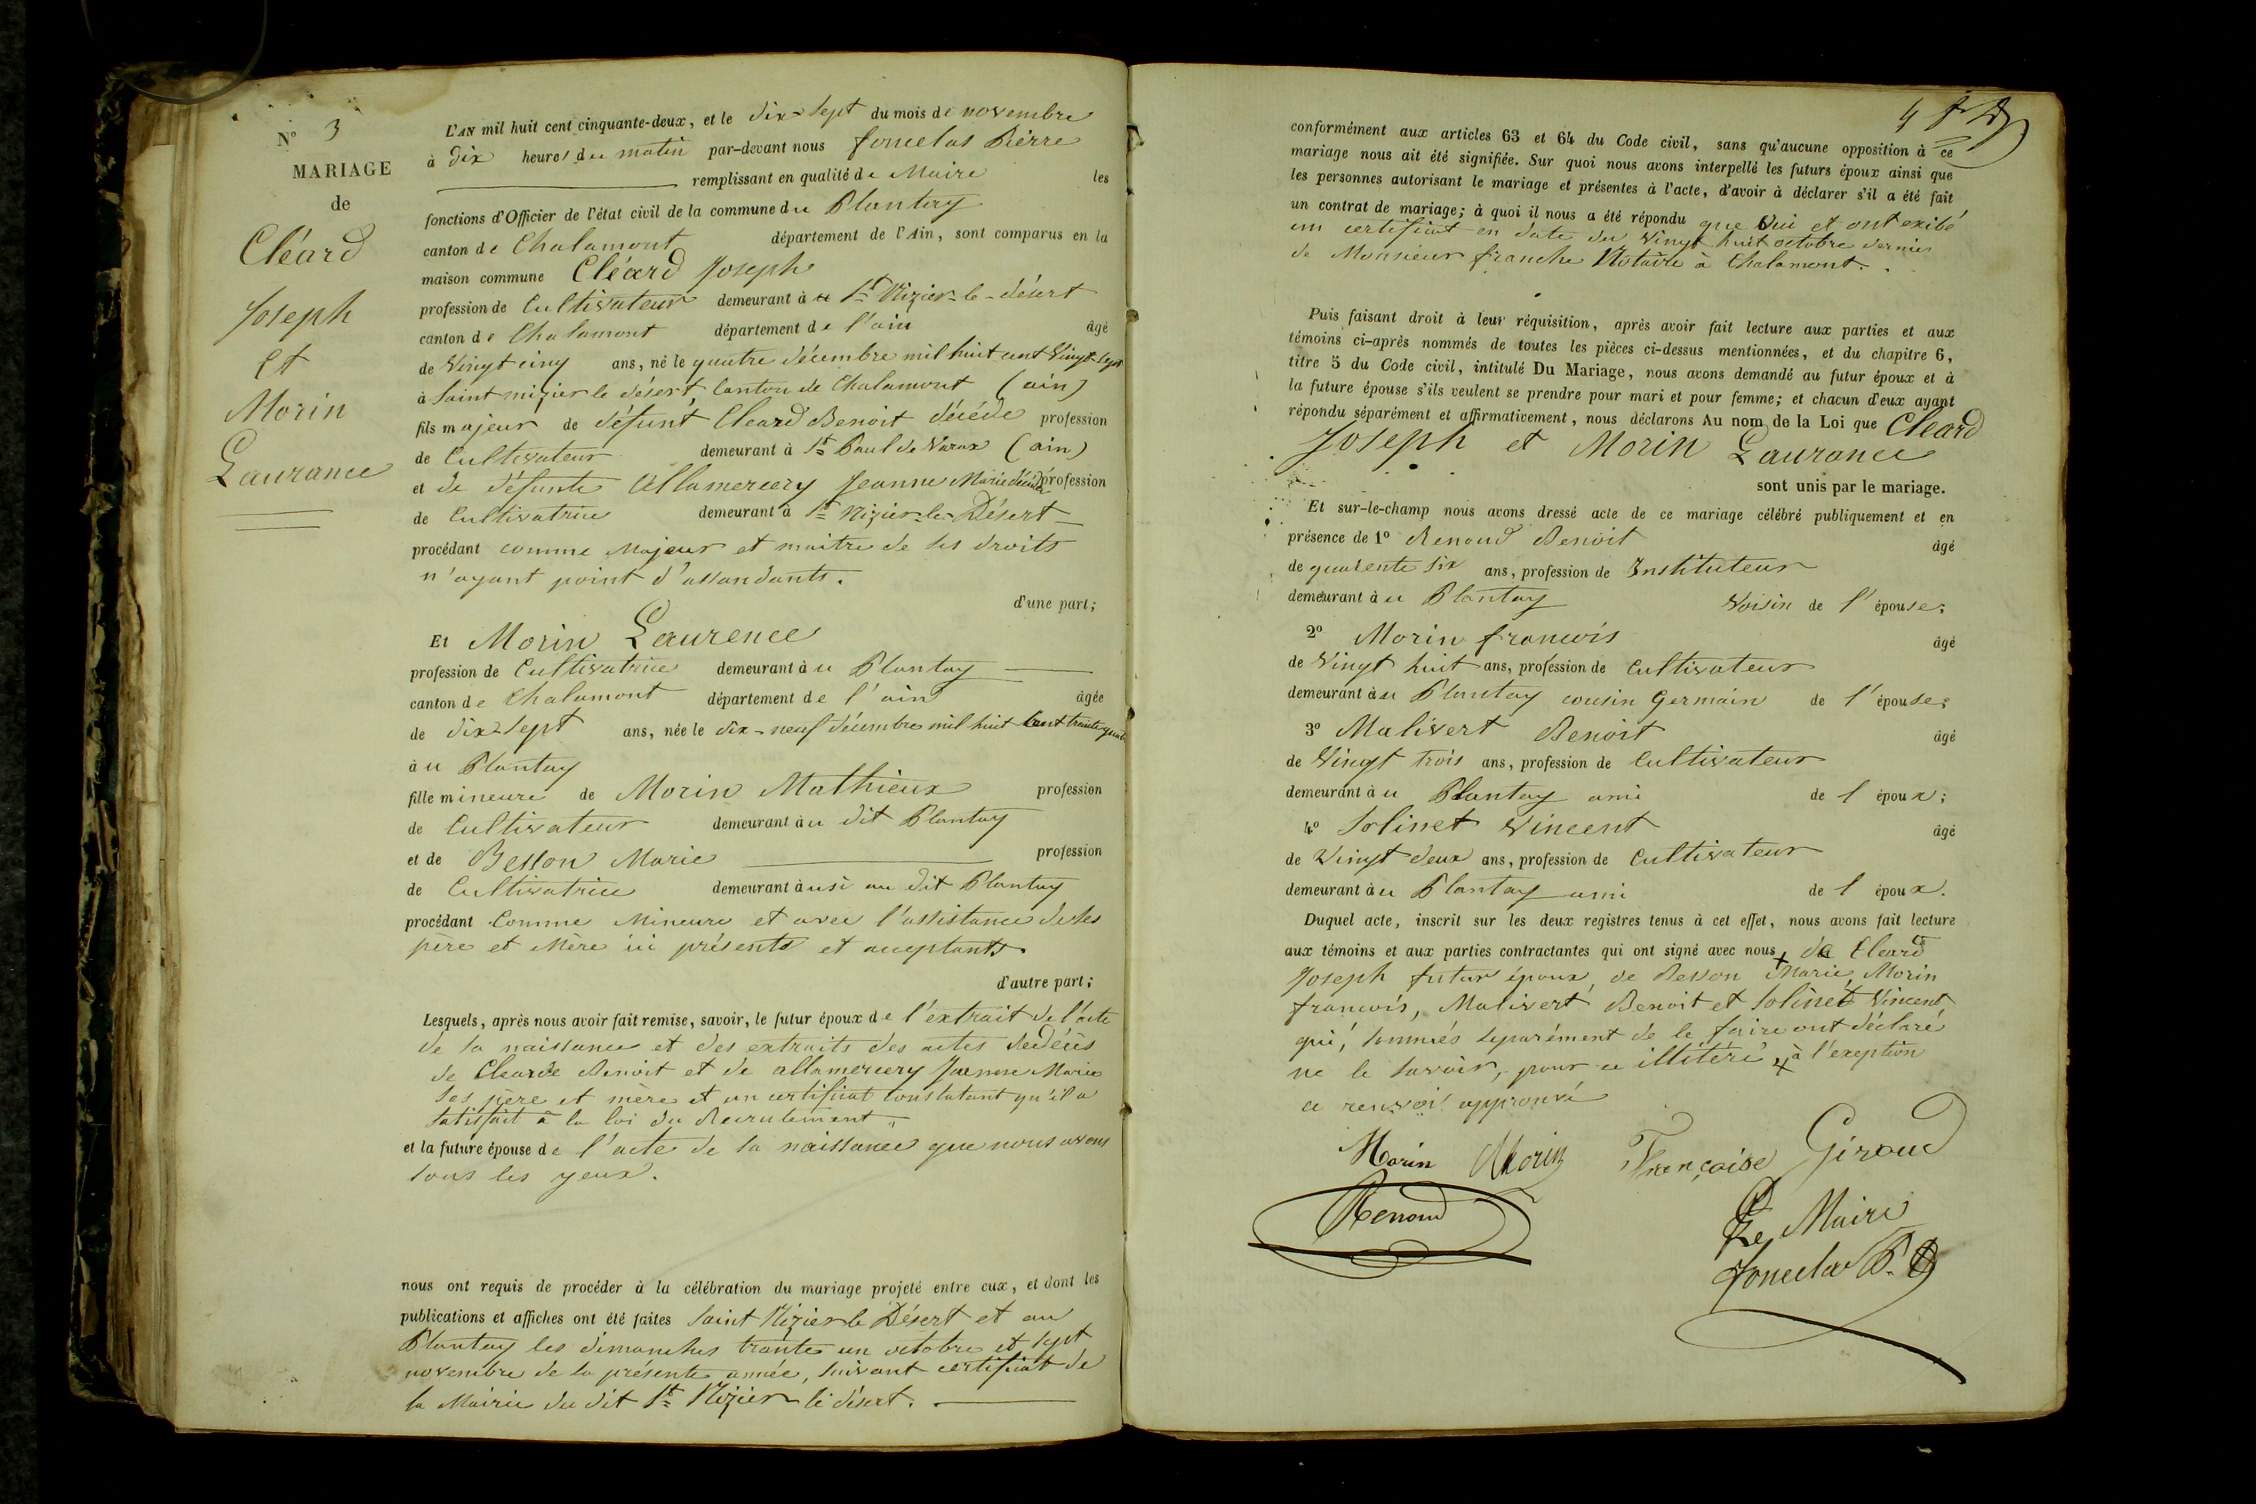 N° 3
MARIAGE
de
Cléard
Joseph
et
Morin
Laurance
L'AN mil huit cent cinquante-deux, et le dix-sept du mois de novembre
à dix heures du matin par-devant nous Jonclas Pierre
remplissant en qualité de Maire les
fonctions d'Officier de l'état civil de la commune du Plantay
canton de Chalamont département de l'Ain, sont comparus en la
maison commune Cléard Joseph
profession de Cultivateur demeurant à St Nizier-le-désert
canton de Chalamont département de l'ain âgé
de Vingt cinq ans, né le quatre décembre mil huit cent Vingt-sept
à Saint nizier le désert Canton de Chalamont (ain)
fils majeur de défunt Cleard Benoit décédé profession
de Cultivateur demeurant à St Paul de Varax (ain)
et de défunte Allamercery Jeanne Marie décédée profession
de Cultivatrice demeurant à St Nizier-le-Désert
procédant comme Majeur et maitre de ses droits
n'ayant point d'assandants.
d'une part;
Et Morin Laurence
profession de Cultivatrice demeurant à u Plantay
canton de Chalamont département de l'ain âgée
de dix-sept ans, née le dix-neuf décembre mil huit Cent trente quatre
à u Plantay
fille mineure de Morin Mathieux profession
de Cultivateur demeurant à u dit Plantay
et de Besson Marie profession
de Cultivatrice demeurant à usi au dit Plantay
procédant Comme Mineure et avec l'assistance de ses
père et Mère ici présents et acceptants
d'autre part;
Lesquels, après nous avoir fait remise, savoir, le futur époux de l'extrait de l'acte
de sa naissance et des extraits des actes de décès
de Cleard Benoit et de allamercery Jeanne Marie
ses père et mère et un certificat constatant qu'il a
satisfait à la loi du Recrutement
et la future épouse de l'acte de sa naissance que nous avons
sous les yeux.
nous ont requis de procéder à la célébration du mariage projeté entre eux, et dont les
publications et affiches ont été faites Saint Nizier le Désert et au
Plantay les dimanches trante un octobre et sept
novembre de la présente année, suivant certificat de
la Mairie du dit St Nizier le désert.
conformément aux articles 63 et 64 du Code civil, sans qu'aucune opposition à ce
mariage nous ait été signifiée. Sur quoi nous avons interpellé les futurs époux ainsi que
les personnes autorisant le mariage et présentes à l'acte, d'avoir à déclarer s'il a été fait
un contrat de mariage; à quoi il nous a été répondu que Oui et ont exibé
un certificat en date du Vingt huit octobre dernier
de Monsieur franche Notaire à Chalamont.
Puis faisant droit à leur réquisition, après avoir fait lecture aux parties et aux
témoins ci-après nommés de toutes les pièces ci-dessus mentionnées, et du chapitre 6,
titre 5 du Code civil, intitulé Du Mariage, nous avons demandé au futur époux et à
la future épouse s'ils veulent se prendre pour mari et pour femme; et chacun d'eux ayant
répondu séparément et affirmativement, nous déclarons Au nom de la Loi que Cleard
Joseph et Morin Laurance
sont unis par le mariage.
Et sur-le-champ nous avons dressé acte de ce mariage célébré publiquement et en
présence de 1° Renoud Benoit âgé
de quarente six ans, profession de Instituteur
demeurant à u Plantay Voisin de l'épouse;
2° Morin francois âgé
de Vingt huit ans, profession de Cultivateur
demeurant à u Plantay cousin Germain de l'épouse;
3° Malivert Benoit âgé
de Vingt trois ans, profession de Cultivateur
demeurant à u Plantay ami de l époux;
4° Solinet Vincent âgé
de Vingt deux ans, profession de Cultivateur
demeurant à u Plantay ami de l époux.
Duquel acte, inscrit sur les deux registres tenus à cet effet, nous avons fait lecture
aux témoins et aux parties contractantes qui ont signé avec nous + de Cleard
Joseph futur époux, de Besson Marie, Morin
francois, Malivert Benoit et Solinet Vincent
qui, sommés separément de le faire ont déclaré
ne le savoir, pour ce illitéré + à l'exeption
ce renvoi approuvé
Morin Morin Françoise Giroud
Renoud
Le Maire
Jonclas P.